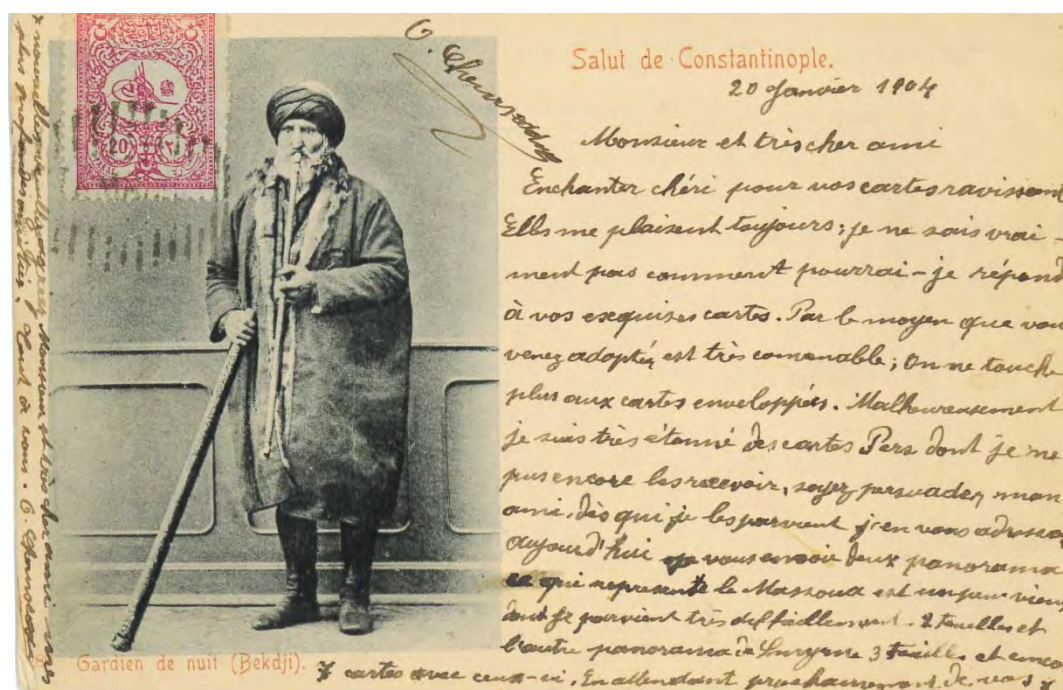 Salut de Constantinople.
20 Janvier 1904
Monsieur et très cher ami
Enchanter chéri pour vos cartes ravissant
Elles me plaisent toujours; je ne sais vrai-
ment pas comment pourrai-je répond
à vos exquises cartes. Par le moyen que vou
venez adoptéz est très convenable; On ne touche
plus aux cartes enveloppées. Malheureusement
je suis très étonné des cartes Pers dont je ne
pus encore les recevoir, soyez persuadez mon
ami, dès qui je les parvient j'en vous adresse
aujourd'hui je vous envoie deux panorama
qui represente le Massoua est un peu vieu
dont je parvient très deffisilement. 2 feuilles et
l'autre panorama de Smyrne 3 feuille. et enco
7 cartes avec ceux-ci. En attendant prochainement de vos
Monsieur et très cher ami mes
plus profondes
Tout à vous.
20
Gardien de nuit (Bekdji).